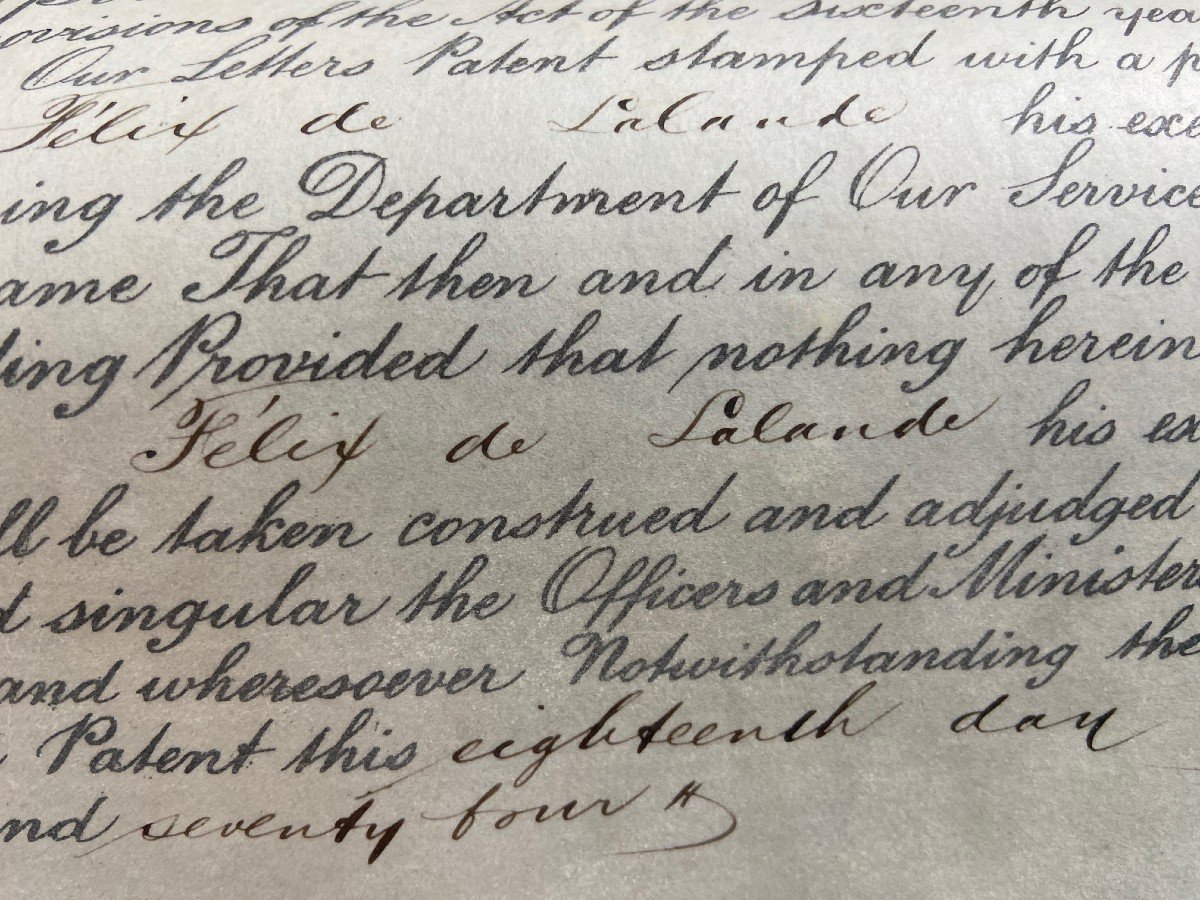 ovisions of the Act of the sixteenth yea
Our Letters Patent stamped with a p
Félix de Lalande his exe
ing the Department of Our Service
ame That then and in any of the
ding Provided that nothing herein
Félix de Lalande his ex
ll be taken construed and adjudged
d singular the Officers and Minister
and wheresoever Notwithstanding the
Patent this eighteenth day
nd seventy four "